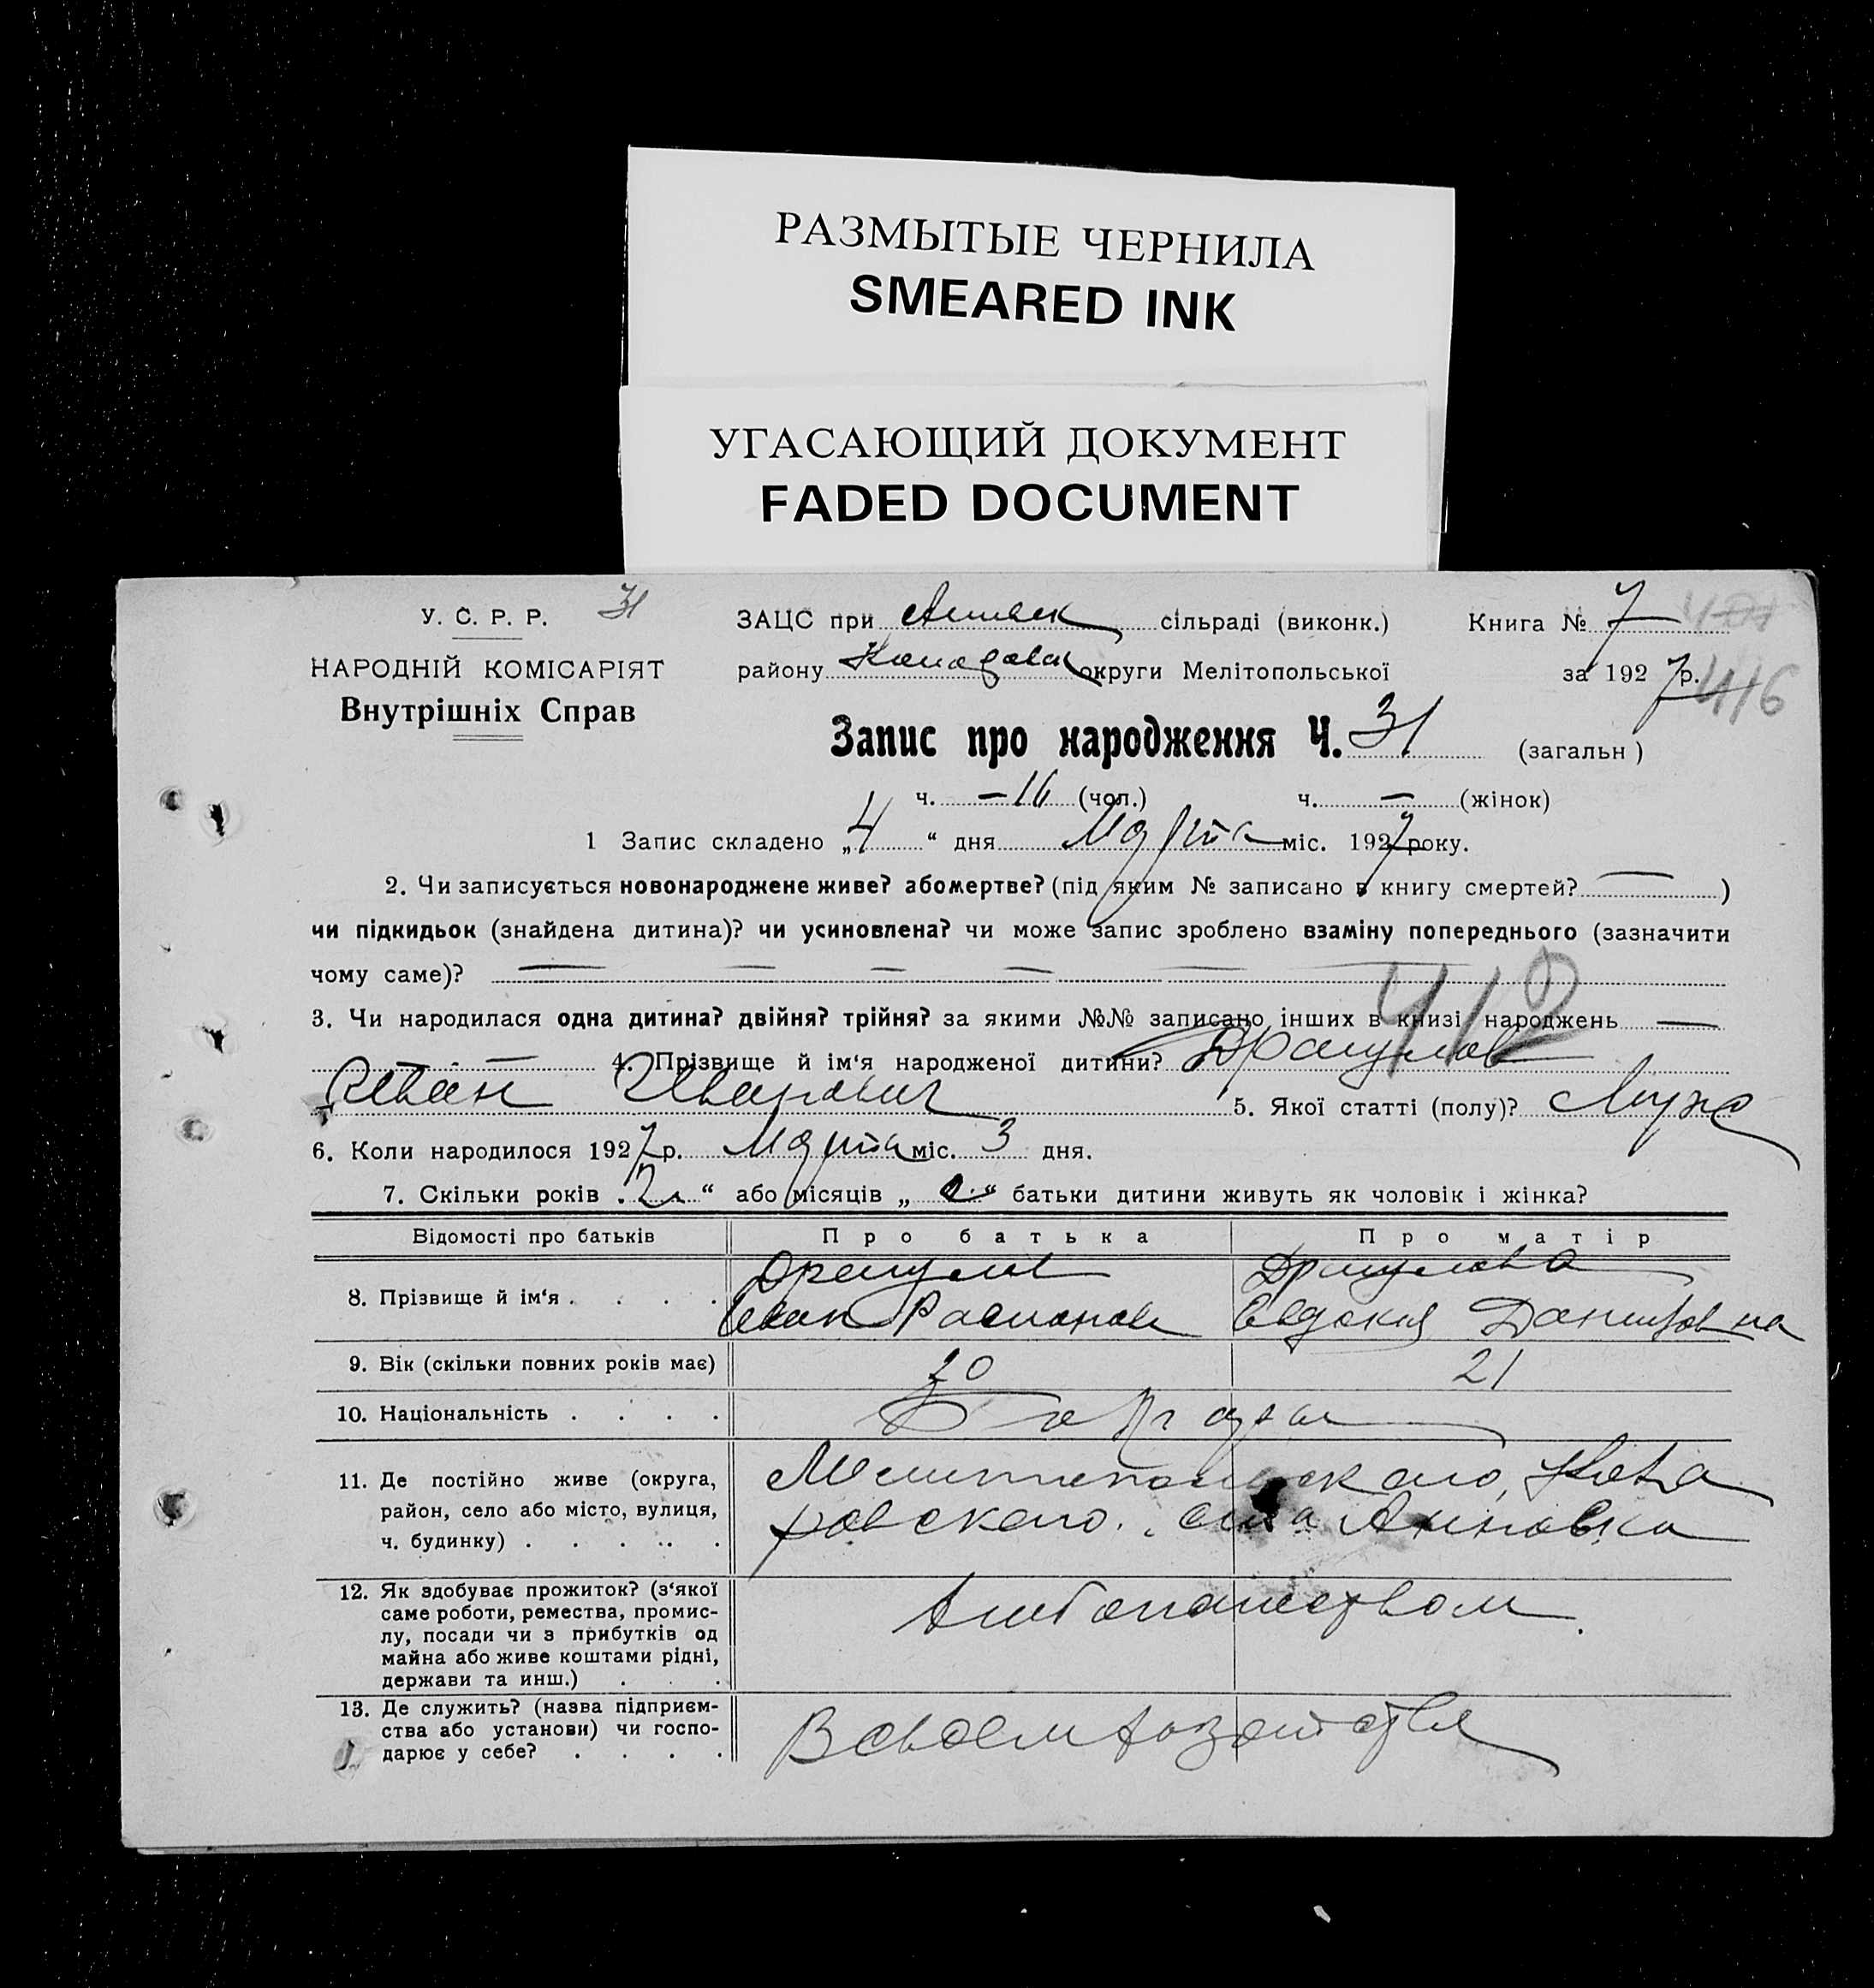 РАЗМЫТЫЕ ЧЕРНИЛА
SMEARED INK
УГАСАЮЩИЙ ДОКУМЕНТ
FADED DOCUMENT
У. С. Р. Р. 31
НАРОДНІЙ КОМІСАРІЯТ
Внутрішніх Справ
ЗАЦС при сільраді (виконк.) Книга № 7
району округи Мелітопольської за 1927 р. 416
Запис про народження Ч. 31 (загальн )
ч. — 16 (чол.) ч. — (жінок)
1 Запис складено „ 4 “ дня Марта міс. 1927 року.
2. Чи записується новонароджене живе? або мертве? (під яким № записано в книгу смертей? — )
чи підкидьок (знайдена дитина)? чи усиновлена? чи може запис зроблено взаміну попереднього (зазначити
чому саме)? — — — — — —
412
3. Чи народилася одна дитина? двійня? трійня? за якими №№ записано інших в книзі народжень —
— — 4. Прізвище й ім‘я народженої дитини? Драгулов
Иван Иванович 5. Якої статті (полу)? Муж
6. Коли народилося 1927 р. Марта міс. 3 дня.
7. Скільки років „ 2 “ або місяців „ “ батьки дитини живуть як чоловік і жінка?
Відомості про батьків Про батька Про матір
8. Прізвище й ім‘я . . . . Драгулов Драгулова
Иван Евдокия Даниловна
9. Вік (скільки повних років має) 20 21
10. Національність . . . . Болгары
11. Де постійно живе (округа, район, село або місто, вулиця, ч. будинку) . . . . . Мелитопольского,
ровского. села Анновка
12. Як здобуває прожиток? (з‘якої саме роботи, ремества, промислу, посади чи з прибутків од майна або живе коштами рідні, держави та инш.) . . . Хлебопашеством.
13. Де служить? (назва підприємства або установи) чи господарює у себе? . . . . В своем хозяйстве